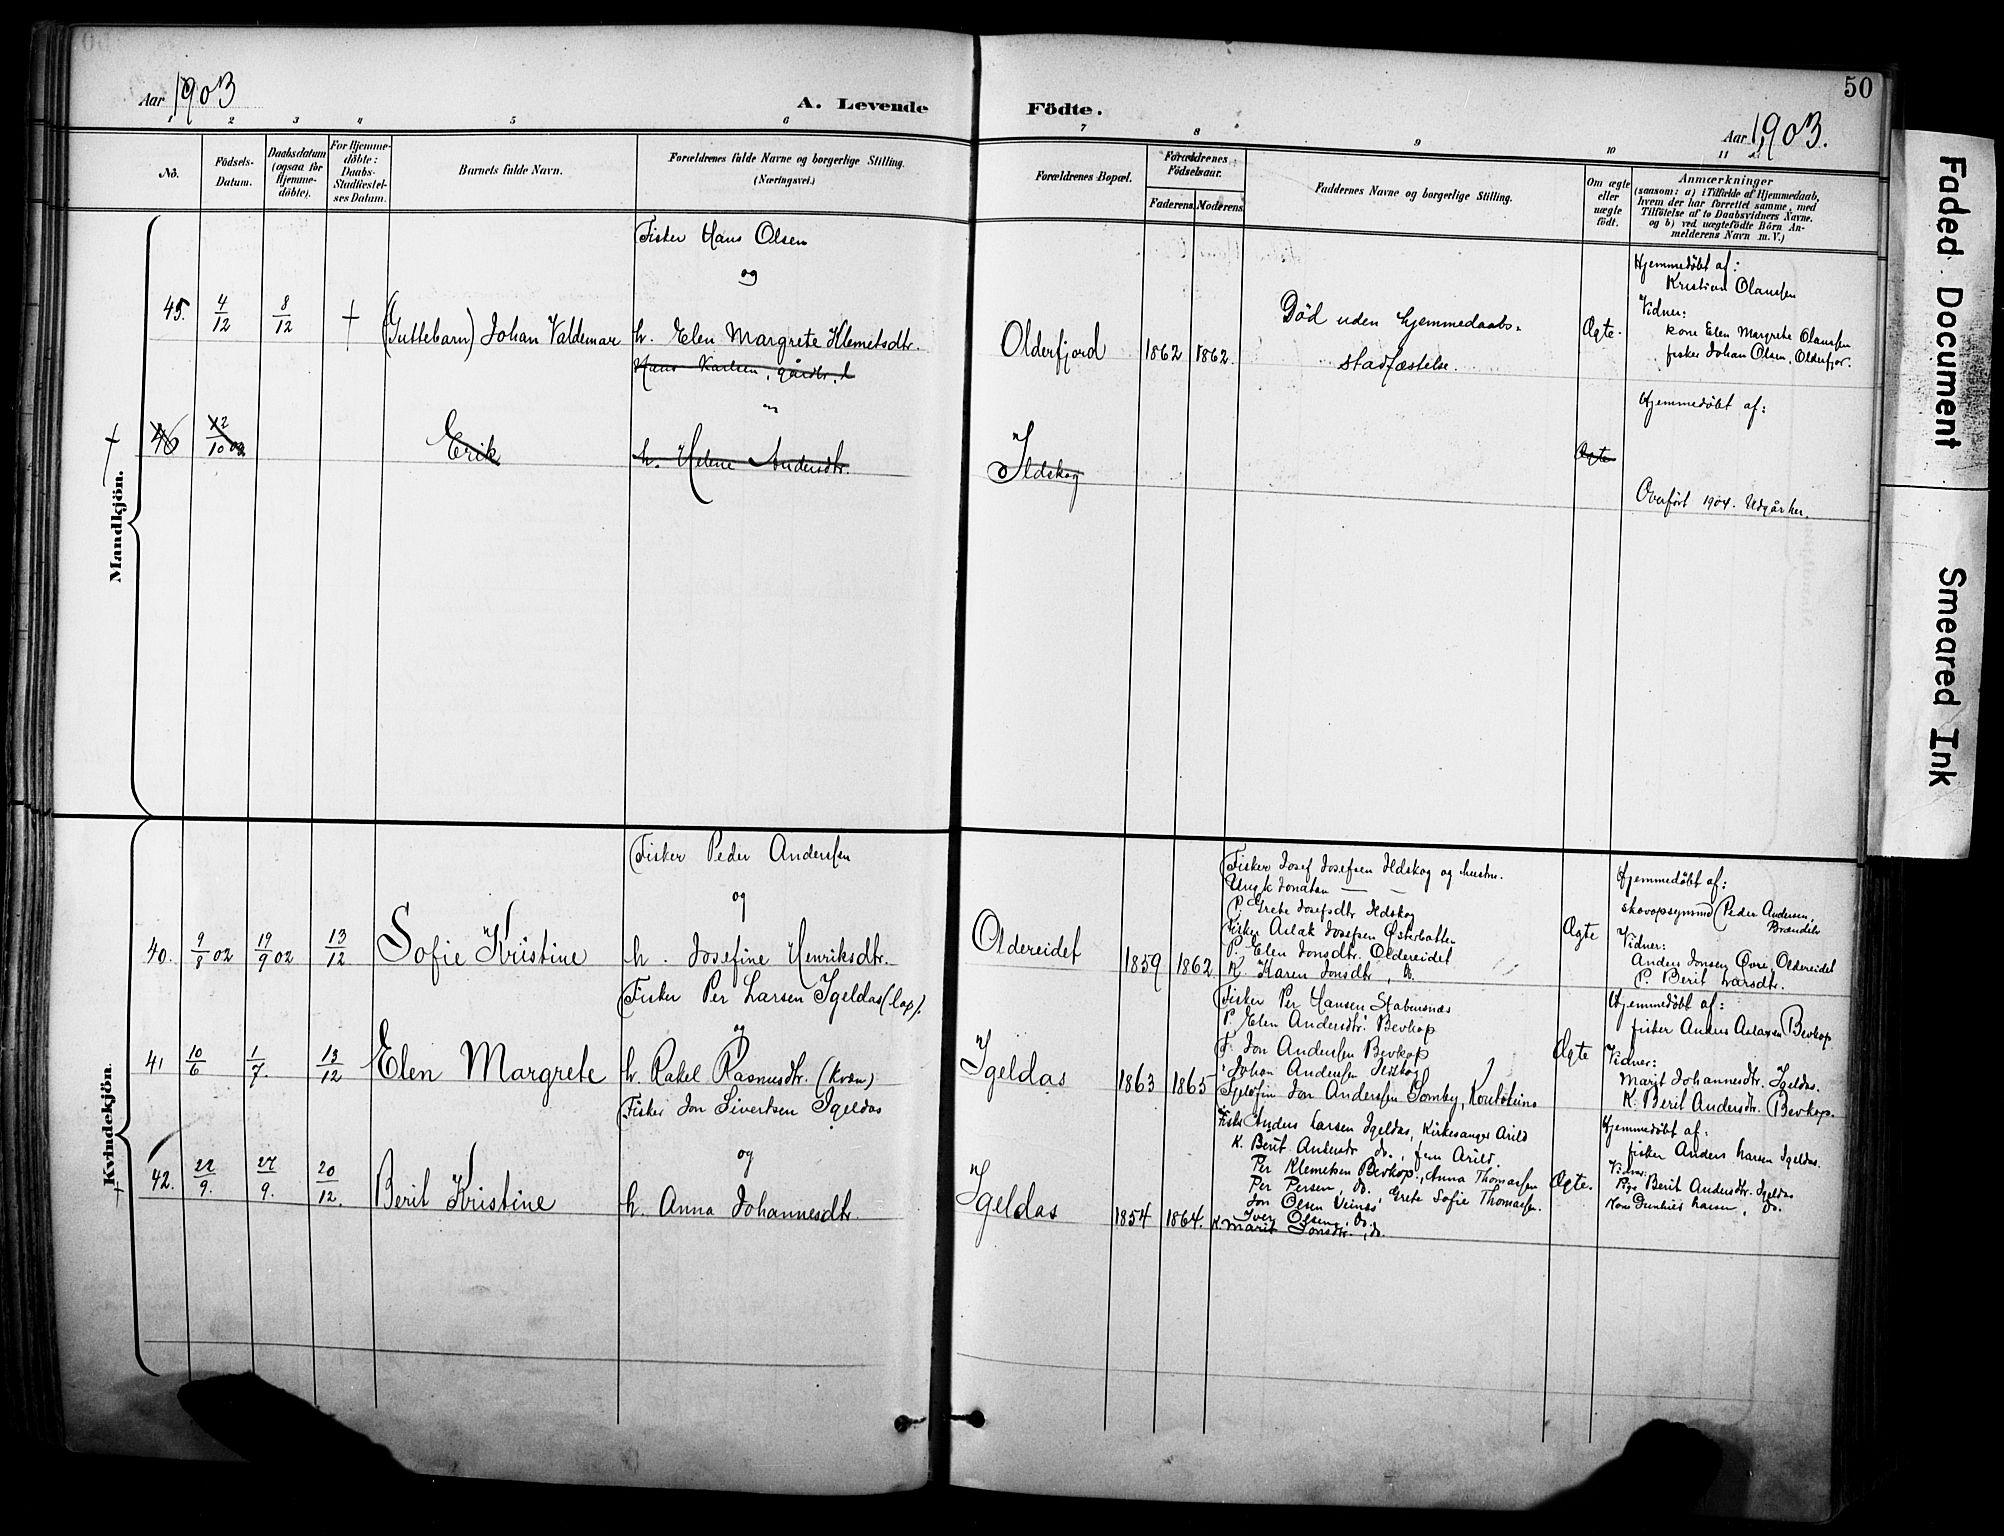 Aar 1903
A. Levende Födte.
50
Aar 1903.
1 2 3 4 5 6 7 8 9 10 11
No.
Födsels-Datum.
Daabsdatum (ogsaa for Hjemme-döbte).
For Hjemme-döbte: Daabs-Stadfæstel-ses Datum.
Barnets fulde Navn.
Forældrenes fulde Navne og borgerlige Stilling.
(Næringsvei.)
Forældrenes Bopæl.
Forældrenes Födselsaar.
Faderens. Moderens.
Faddernes Navne og borgerlige Stilling.
Om ægte eller uægte födt.
Anmærkninger
(saasom: a) i Tilfælde af Hjemmedaab,
hvem der har forrettet samme, med
Tilföielse af to Daabsvidners Navne.
og b) ved uægtefödte Börn An-
melderens Navn m. V.)
Mandkjön.
Fisker Hans Olsen
og
45. 4/12 8/12 † (Guttebarn) Johan Valdemar h. Elen Margrete Klemetsdtr. Olderfjord 1862 1862.
Död uden hjemmedaabs-
stadfæstelse.
Ægte.
Hjemmedöbt af:
Kristian Olaussen
Vidner:
kone Elen Margrete Olaussen
fisker Johan Olsen, Olderfjor.
Hans Karlsen, gårdbr.
† 46 12/10 02 Erik h. Helene Andersdtr. Ildskog Ægte
Hjemmedöbt af:
Overfört 1904. Udgår her.
Kvindekjön.
Fisker Peder Anderssen
og
40. 9/8 02 19/9 02 13/12 Sofie Kristine h. Josefine Henriksdtr. Oldereidet 1859 1862.
Fisker Josef Josefsen Ildskog og hustru.
Ungk Jonatan — —
P. Grete Josefsdtr Ildskog
Fisker Aslak Josefsen Østerbotten
P. Elen Jonsdtr. Oldereidet
K. Karen Jonsdtr, do.
Ægte
Hjemmedöbt af:
skovopsynsmd Peder Andersen,
Brændelv
Vidner:
Anders Jonsen Øvre Oldereidet
P. Berit Larsdtr.
Fisker Per Larsen Igeldas (lap).
og
41 10/6 1/7. 13/12 Elen Margrete h. Rakel Rasmusdtr. (kvæn) Igeldas 1863 1865
Fisker Per Hansen Stabursnæs
P. Elen Andersdtr. Bevkop
F. Jon Anderssen Bevkop
Johan Anderssen Ildskog
Fjeldfin Jon Anderssen Somby, Koutokeino
Ægte
Hjemmedöbt af:
fisker Anders Aslaxen Bevkop
Vidner:
Marit Johannesdtr. Igeldas.
K. Berit Andersdtr. Bevkop.
Fisker Jon Sivertsen Igeldas
og
† 42. 22/9. 27/9. 20/12. Berit Kristine h. Anna Johannesdtr. Igeldas 1854 1864.
Fisker Anders Larsen Igeldas, Kirkesanger Arild
K. Berit Andersdr do., frm Arild.
Per Klemetsen Bevkop, Anna Thomassen
Per Persen, do., Grete Sofie Thomassen.
Jon Olsen Veines
Iver Olsen, do.
K. Marit Jonsdtr., do.
Ægte.
Hjemmedöbt af:
fisker Anders Larsen Igeldas.
Vidner:
Pige Berit Andersdtr. Igeldas
Kone Gunhild Larsen, do.
Faded Document
Smeared Ink